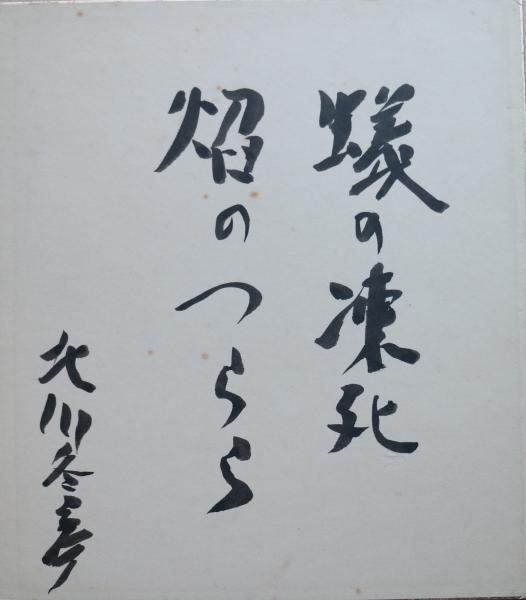 蟻の凍死
焔のつらら
北川冬彦